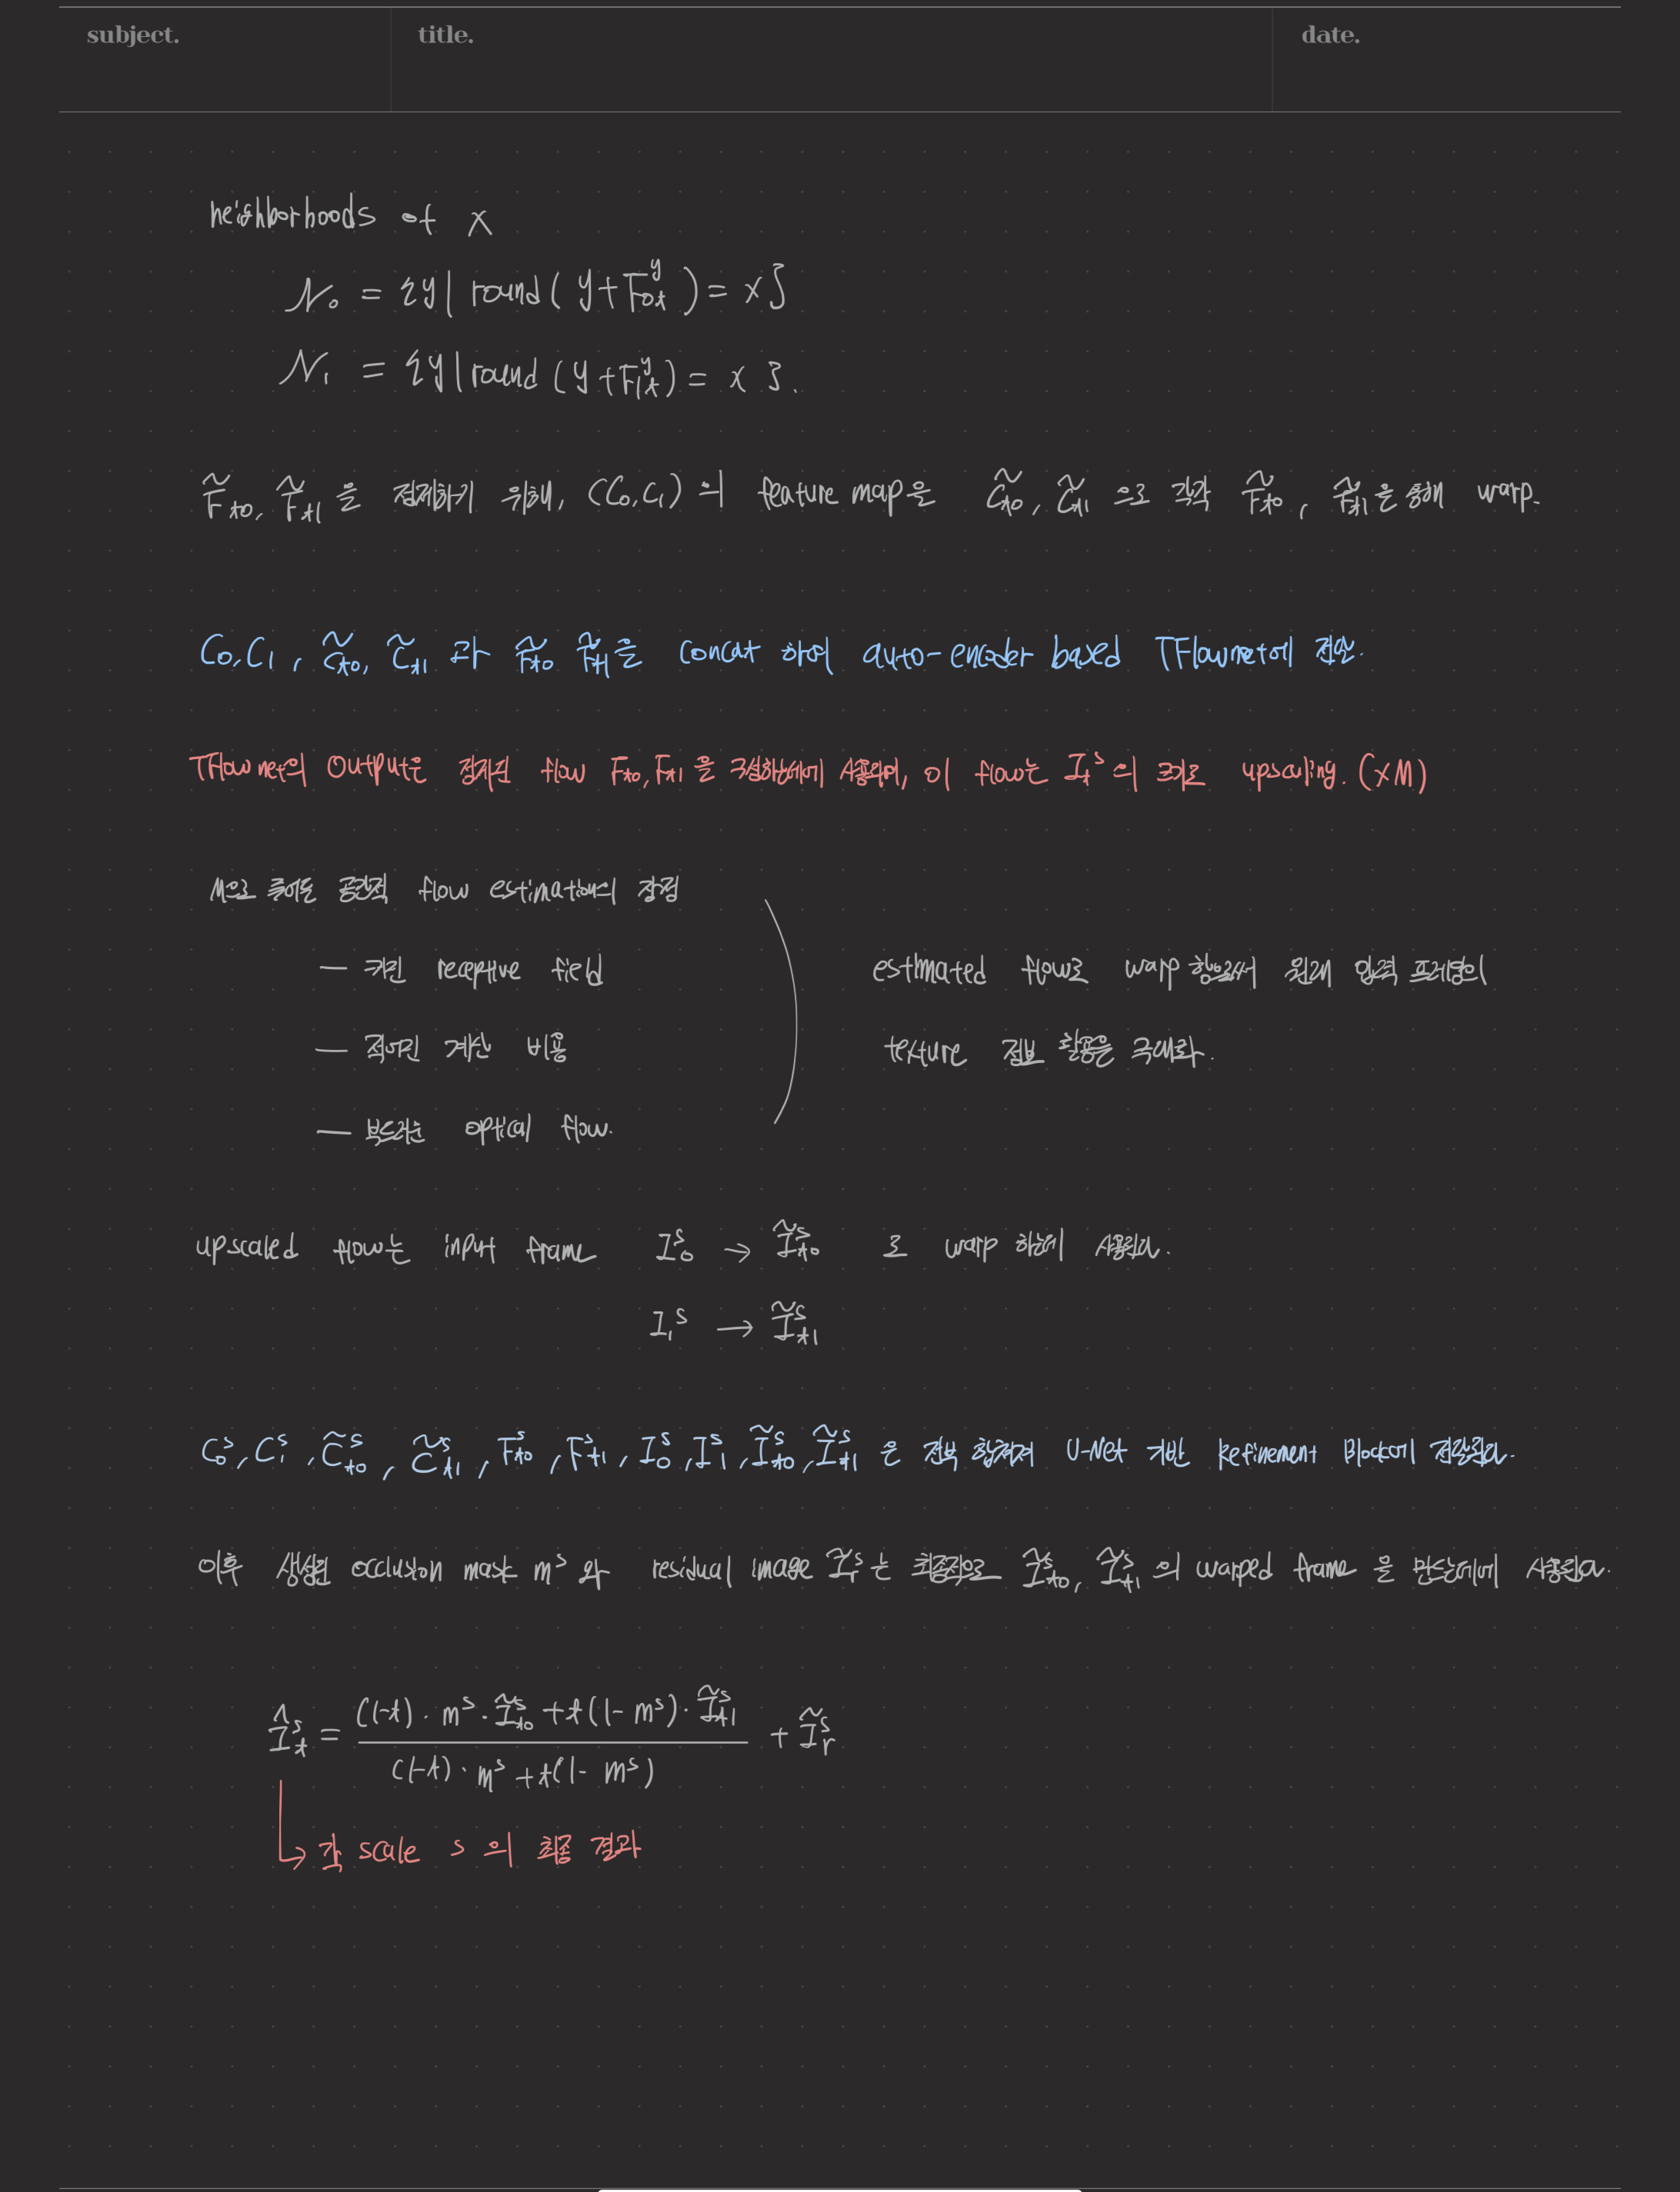 subject. title. date.
neighborhoods of x
𝒩₀ = {y | round( y+F₀ₜʸ ) = x}
𝒩₁ = {y | round (y+F₁ₜʸ) = x }.
F̃ₜ₀, F̃ₜ₁ 을 정제하기 위해, (C₀,C₁) 의 feature map은 C̃ₜ₀, C̃ₜ₁ 으로 각각 F̃ₜ₀, F̃ₜ₁을 통해 warp.
C₀,C₁, C̃ₜ₀, C̃ₜ₁ 과 F̃ₜ₀ F̃ₜ₁을 concat 하여 auto-encoder based TFlownet에 전송.
TFlownet의 output은 정제된 flow Fₜ₀,Fₜ₁ 을 구성하는데에 사용되며, 이 flow는 Iₜˢ 의 크기로 upscaling. (×M)
M으로 줄어든 공간적 flow estimation의 장점
— 커진 receptive field
— 적어진 계산 비용
— 부드러운 optical flow.
estimated flow로 warp함으로서 원래 입력 프레임의
texture 정보 활용을 극대화.
upscaled flow는 input frame I₀ˢ → Ĩₜ₀ˢ 로 warp 하는데 사용된다.
I₁ˢ → Ĩₜ₁ˢ
C₀ˢ, C₁ˢ, C̃ₜ₀ˢ, C̃ₜ₁ˢ, Fₜ₀ˢ, Fₜ₁ˢ, I₀ˢ, I₁ˢ, Ĩₜ₀ˢ, Ĩₜ₁ˢ 은 전부 합쳐져 U-Net 기반 Refinement Block에 전달된다.
이후 생성된 occlusion mask mˢ 와 residual image Ĩᵣˢ는 최종적으로 Ĩₜ₀ˢ, Ĩₜ₁ˢ 의 warped frame 을 만드는데에 사용된다.
Îₜˢ = ((1-t) · mˢ · Ĩₜ₀ˢ + t(1- mˢ) · Ĩₜ₁ˢ) / ((1-t) · mˢ + t(1- mˢ)) + Ĩᵣˢ
↳ 각 scale s 의 최종 결과